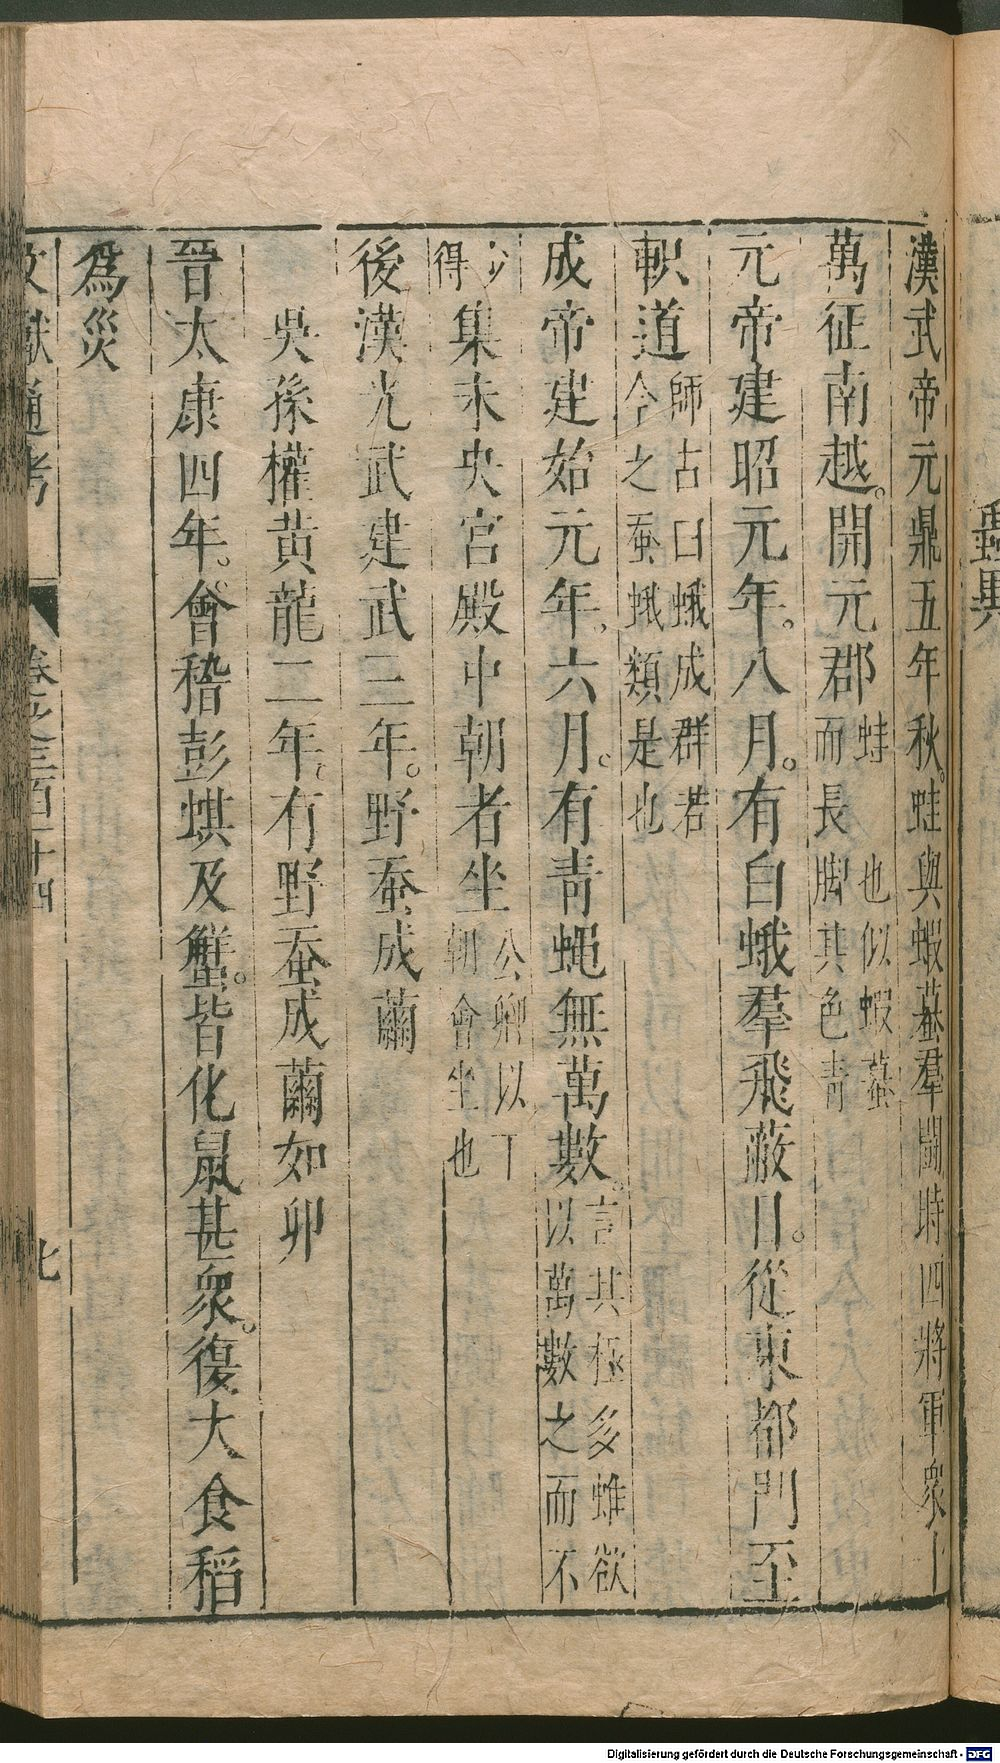 漢武帝元鼎五年秋。蛙與蝦蟇羣鬬。時四將軍衆十
萬征南越。開元郡蛙也似蝦蟇而長脚其色青
元帝建昭元年。八月。有白蛾羣飛蔽日。從東都門至
軹道師古曰蛾成群若今之蚕蛾類是也
成帝建始元年。六月。有青蠅無萬數。言其極多雖欲以萬數之而不
可得集未央宮殿中朝者坐公卿以下朝會坐也
後漢光武建武三年。野蚕成繭
吳孫權黃龍二年。有野蚕成繭如卵
晉太康四年。會稽彭蜞及蟹。皆化鼠甚衆。復大食稻
為災
文獻通考 卷之三百十四 七
Digitalisierung gefördert durch die Deutsche Forschungsgemeinschaft - DFG